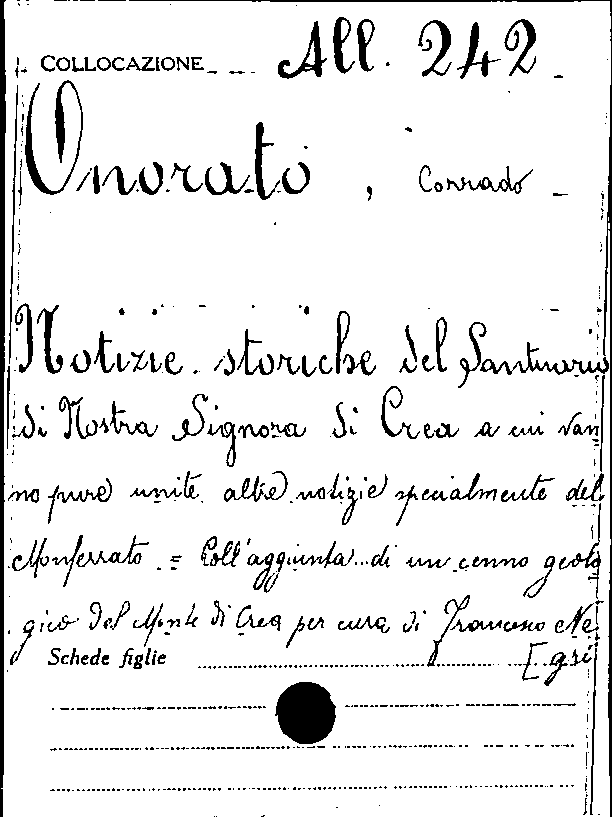 COLLOCAZIONE All. 242
Onorato, Corrado
Notizie storiche del Santuario
di Nostra Signora di Crea a cui van
no pure unite altre notizie specialmente del
Monferrato = Coll'aggiunta di un cenno geolo
gico del Monte di Crea per cura di Francesco Ne
Schede figlie [gri